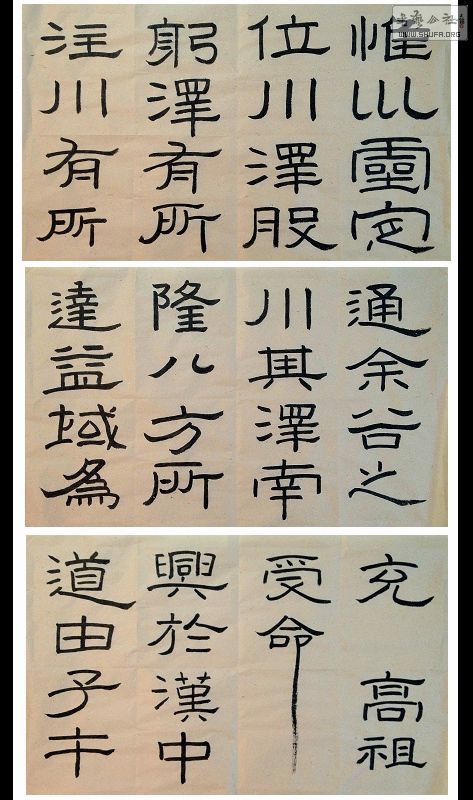 書藝公社
WWW.SHUFA.ORG
惟巛靈定
位川澤股
躬澤有所
注川有所
通余谷之
川其澤南
隆八方所
達益域為
充 高祖
受命
興於漢中
道由子午